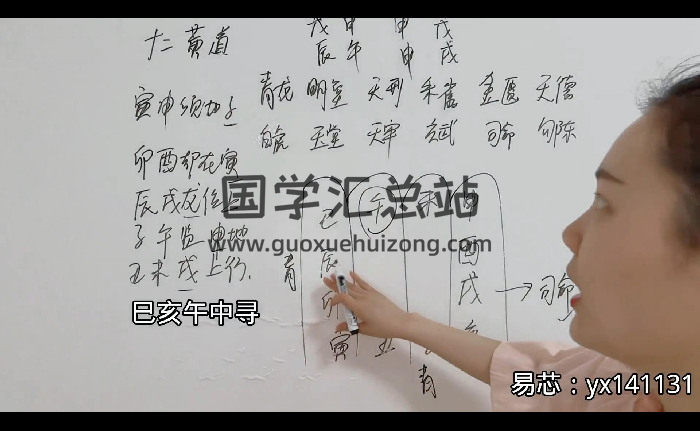 戊 甲 甲 戊
辰 午 申 戌
十二黄道
青龙 明堂 天刑 朱雀 金匮 天德
寅申须加子
白虎 天堂 天牢 玄武 司命 勾陈
卯酉却在寅
辰戌龙位
子午 申地
丑未戌上行.
国学汇总站
www.guoxuehuizong.com
巳 午 未 申
辰 酉
卯 戌 → 司命
寅 丑
青
青
巳亥午中寻
易芯：yx141131